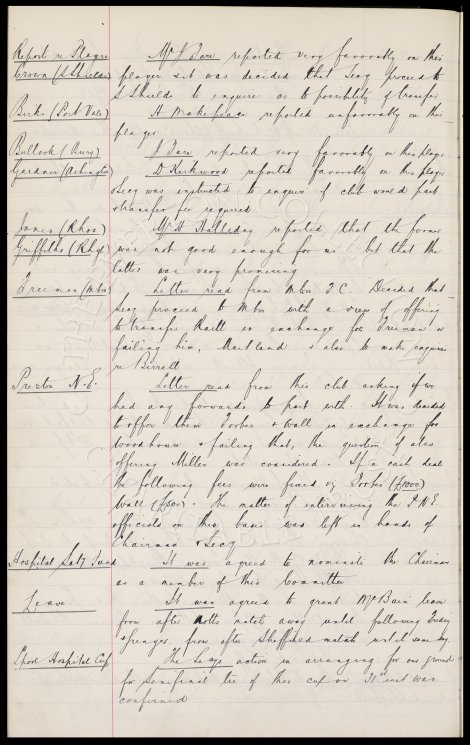 Reports re Players Mr J Dare reported very favorably on this
Crown (S Shields) player & it was decided that Secy proceed to
S Shields to enquire as to possibility of transfer
Birks (Port Vale) H Makepeace reported unfavorably on this
player
Bullock (Bury) J Dare reported very favorably on this player
Gardner (Ashington) D Kirkwood reported favorably on this player
& Secy was instructed to enquire if club would part
& transfer fee required
Jones (Rhos) Mr H Halleday reported that the former
Griffiths (Rhyl) was not good enough for us, but that the
latter was very promising
Freeman (Mbro) Letter read from Mbro F.C. Decided that
Secy proceed to Mbro with a view of offering
to transfer Raitt in exchange for Freeman or
failing him, Maitland & also to make enquiries
re Birrell
Preston N.E. Letter read from this club asking if we
had any forwards to part with. It was decided
to offer them Forbes & Wall in exchange for
Woodhouse & failing that, the question of also
offering Miller was considered. If a cash deal
the following fees were fixed viz Forbes (£1000)
Wall (£500). The matter of interviewing the P.N.E.
officials on this basis was left in hands of
Chairman & Secy
Hospital Saty Fund It was agreed to nominate the Chairman
as a member of this Committee
Leave It was agreed to grant McBain leave
from after Notts match away until following Friday
& from after Sheffield match until same day
Lpool Hospital Cup The Secys action in arranging for our ground
for semifinal tie of this cup on 31st inst was
confirmed